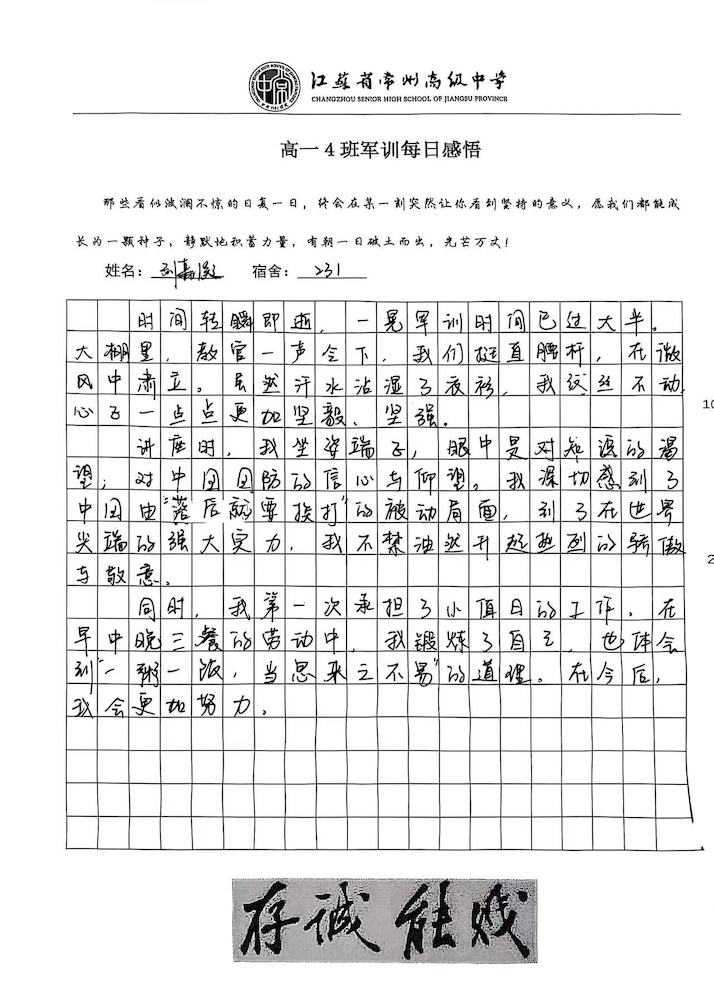 江苏省常州高级中学
CHANGZHOU SENIOR HIGH SCHOOL OF JIANGSU PROVINCE
高一4班军训每日感悟
那些看似波澜不惊的日复一日，终会在某一刻突然让你看到坚持的意义，愿我们都能成
长为一颗种子，静默地积蓄力量，有朝一日破土而出，光芒万丈！
姓名：刘嘉 宿舍：231
时间轻瞬即逝，一晃军训时间已过大半。
大棚里，教官一声令下，我们挺直腰杆，在微
风中肃立。虽然汗水沾湿了衣衫，我纹丝不动，
心已一点点更加坚毅、坚强。
讲座时，我坐姿端正，眼中是对知识的渴
望；对中国国防的信心与仰望。我深切感到了
中国由“落后就要挨打”的被动局面，到了在世界
尖端的强大实力，我不禁油然升起热烈的骄傲
与敬意。
同时，我第一次承担了小值日的工作，在
早中晚三餐的劳动中，我锻炼了自己，也体会
到“一粥一饭，当思来之不易”的道理。在今后，
我会更加努力。
10
2
存诚能贱